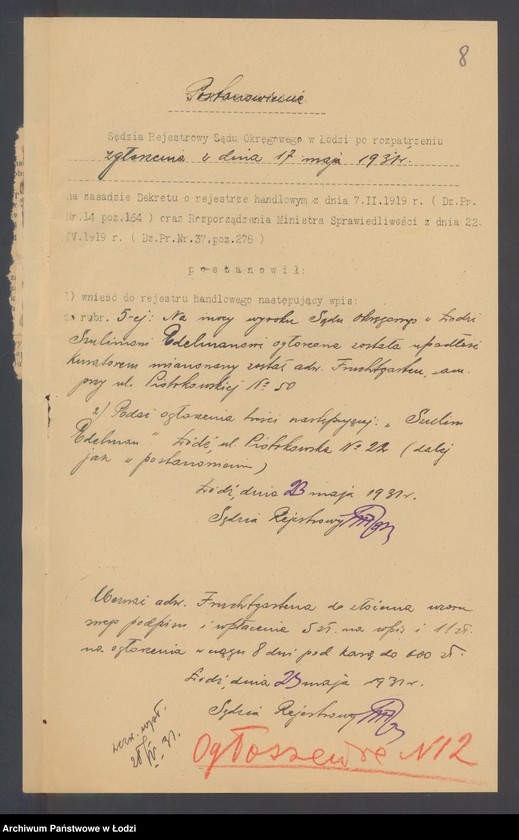 8
Postanowienie
Sędzia Rejestrowy Sądu Okręgowego w Łodzi po rozpatrzeniu
zgłoszenia z dnia 17 maja 1931r.
na zasadzie Dekretu o rejestrze handlowym z dnia 7.II.1919 r. ( Dz.Pr.
Nr.14 poz.164 ) oraz Rozporządzenia Ministra Sprawiedliwości z dnia 22.
IV.1919 r. ( Dz.Pr.Nr.37,poz.278 )
p o s t a n o w i ł:
1) wnieść do rejestru handlowego następujący wpis:
do rubr. 5-ej: Na mocy wyroku Sądu Okręgowego w Łodzi
Sulimani Edelmanowi ogłoszona została upadłość
kuratorem mianowany został adw. Fruchtgarten, zam.
przy ul. Piotrkowskiej № 50
2) Podać ogłoszenia treści następującej: „Sulim
Edelman" Łódź, ul. Piotrkowska № 22 (dalej
jak w postanowieniu)
Łódź, dnia 23 maja 1931r.
Sędzia Rejestrowy
Wezwać adw. Fruchtgartena do złożenia wzoru
swego podpisu i wpłacenia 5 zł. na wpis i 11 zł.
na ogłoszenia w ciągu 8 dni pod karą do 600 zł.
Łódź, dnia 23 maja 1931r.
Sędzia Rejestrowy
31.
Ogłoszenie N12
Archiwum Państwowe w Łodzi